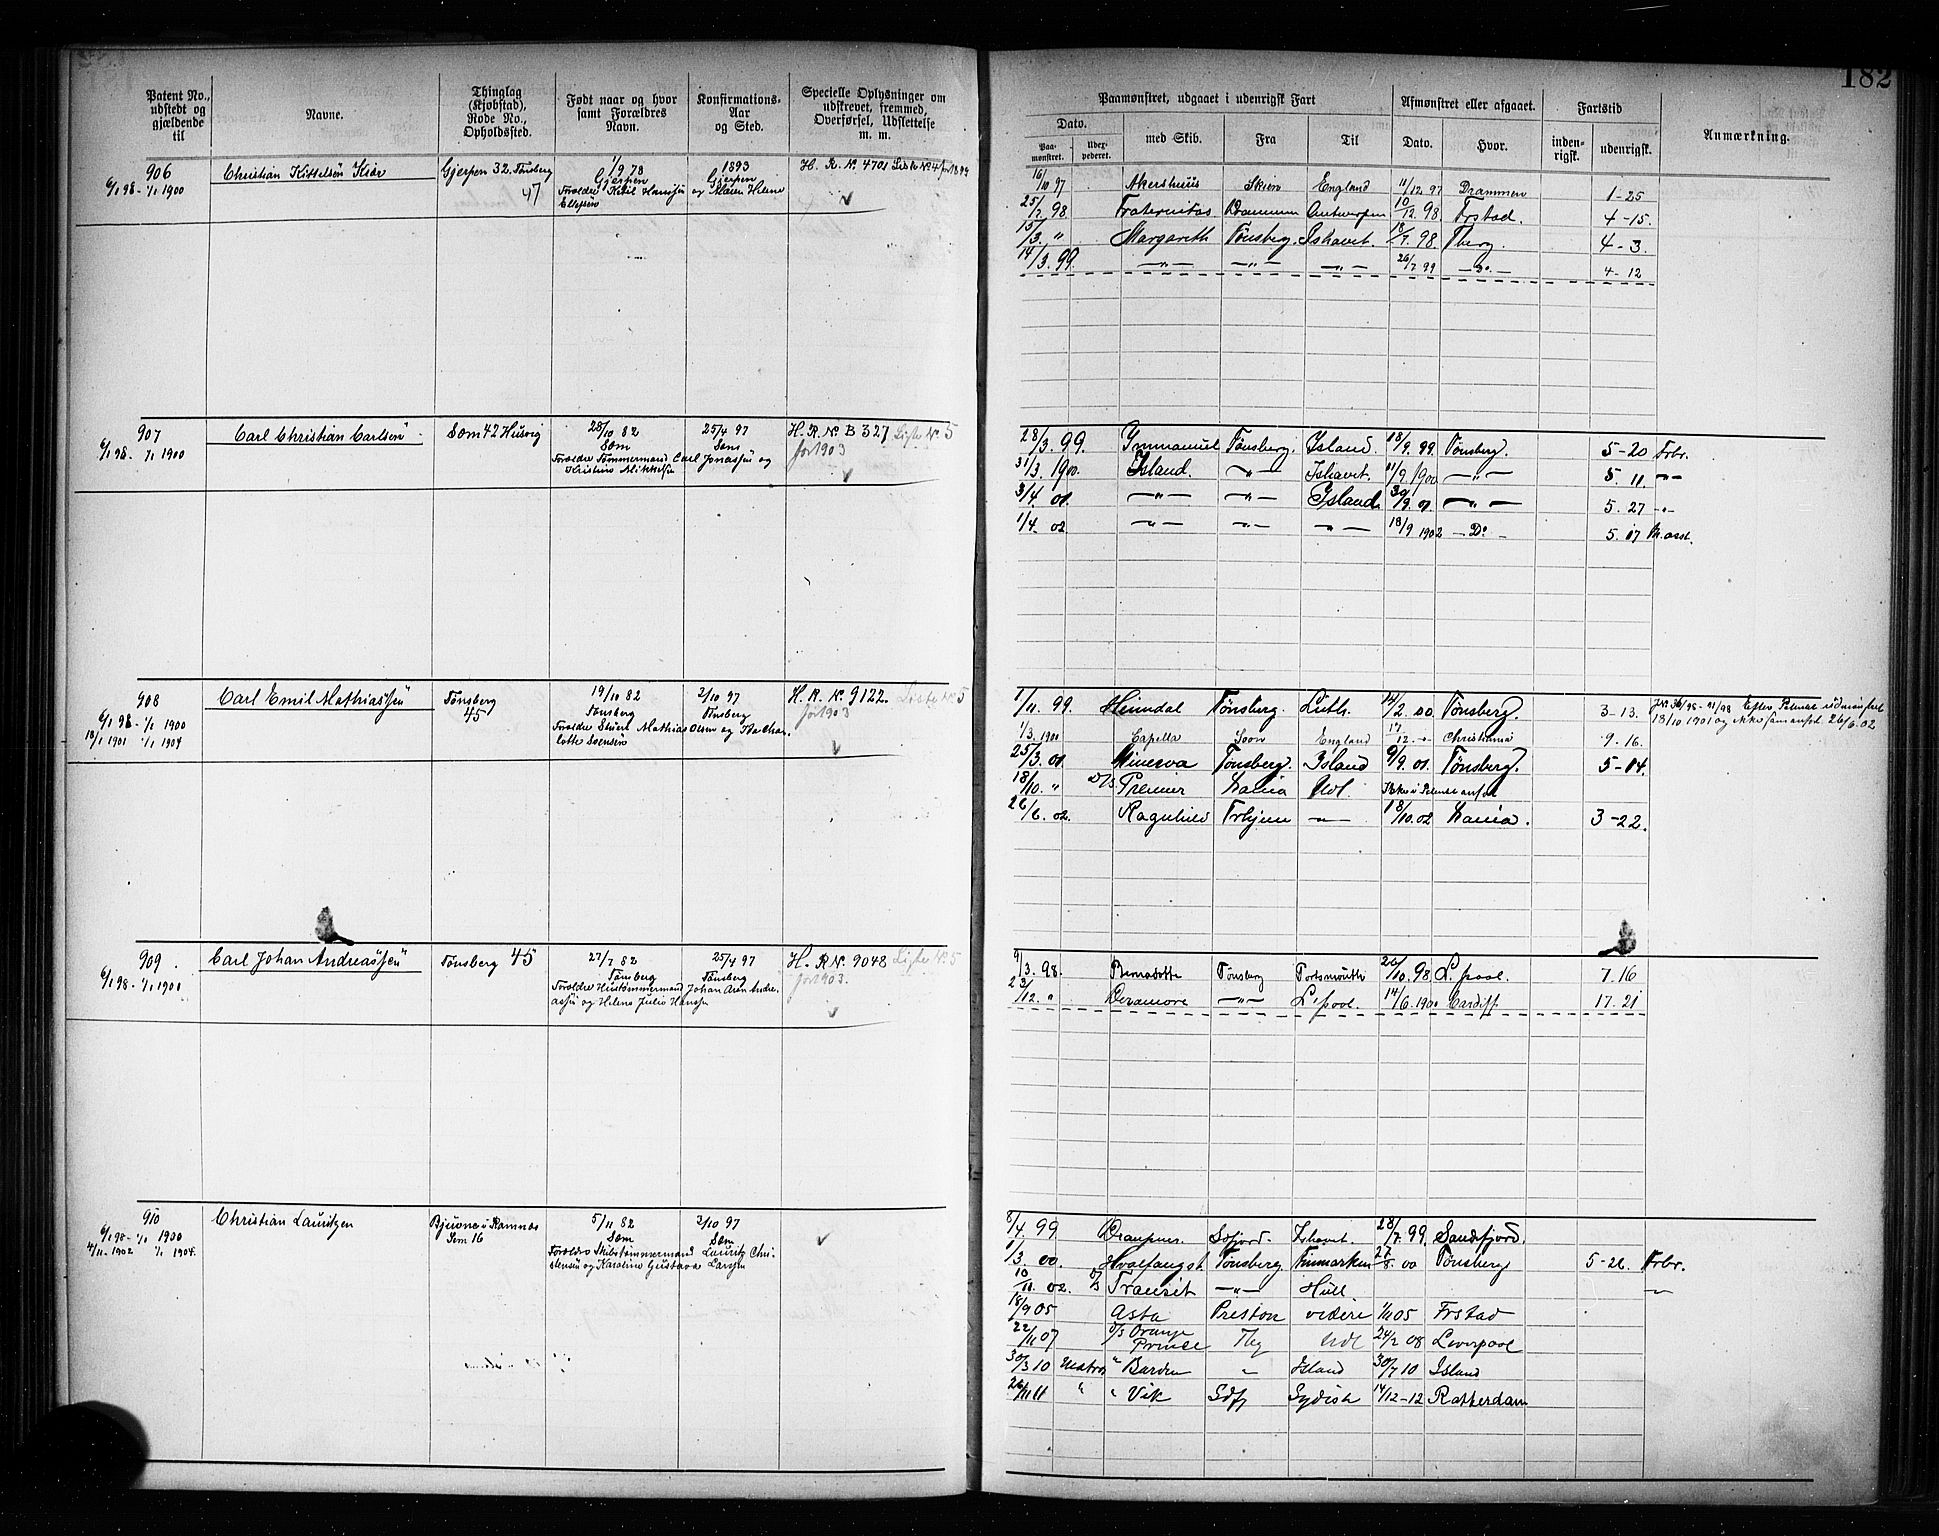 182
Patent No., udstedt og gjældende til
Navne.
Thinglag (Kjøbstad), Rode No., Opholdssted.
Født naar og hvor samt Forældres Navn.
Konfirmations-Aar og Sted.
Specielle Oplysninger om udskrevet, fremmed, Overførsel, Udslettelse m. m.
Paamønstret, udgaaet i udenrigsk Fart
Afmønstret eller afgaaet.
Fartstid
Anmærkning.
Dato.
Paa-mønstret.
Udex-pederet.
med Skib.
Fra
Til
Dato.
Hvor.
inden-rigsk.
udenrigsk.
906
6/1 98 - 1/1 1900
Christian Kittelsen
Gjerpen 32. Tønsberg 47
1/9 78 Gjerpen
Forældre Kittil Hansen og Maren Helene Ellefsen
1893 Gjerpen
H. R. No. 4701 Liste No. 4 for 1899
16/10 97 Akershuus Skien England 11/12 97 Drammen 1-25
25/2 98 Fraternitas Drammen Antwerpen 10/12. 98. Frstad. 4-15.
15/3. " Margareth Tønsberg. Ishavet. 18/7. 98. Tberg. 4-3
14/3. 99. —"— —"— —"— 26/7 99 —Do— 4-12
907
6/1 98. - 1/1 1900
Carl Christian Carlsen
Sem 42 Husvig
28/10 82 Sem
Forældre Tømmermand Carl Jonassen og Kristine Mikkelsen
25/4 97 Sem
H. R. No. B 327 Liste No. 5 for 1903
28/3. 99. Immanuel Tønsberg. Island. 18/9. 99. Tønsberg. 5-20 Frbr.
31/3. 1900. Island. —"— Ishavet. 11/9 1900 —"— 5. 11. —"—
3/4. 01. —"— —"— Island. 30/9. 01 —"— 5. 27 —"—
1/4. 02 —"— —"— —"— 18/9 1902 —Do— 5. 17 M.asst.
908
6/1 98 - 1/1 1900
18/1 1901 1/1 1904
Carl Emil Mathiassen
Tønsberg 45
19/10 82 Tønsberg
Forældre Stuert Mathias Olsen og Ida Charlotte Svensen
2/10 97 Tønsberg
H. R. No. 9122. Liste No. 5 for 1903
1/11. 99. Heimdal Tønsberg. Leith. 14/2. 00. Tønsberg. 3-13.
18/10 1901 og ikke før anført 26/6. 02
1/3. 1900 Capella Soon England 17/12. —"— Christiania 9. 16.
25/3. 01. Minerva Tønsberg. Island 9/9. 01. Tønsberg. 5-14.
18/10. " D/S. Premier Xania Udl.
26/6. 02. Ragnhild Trhjem —"— 18/10. 02 Xania. 3-22.
909
6/1 98. - 1/1 1901
Carl Johan Andreassen
Tønsberg 45
27/7 82 Tønsberg
Forældre Hustømmermand Johan Aron Andreassen og Helene Julie Hansen
25/4 97 Tønsberg
H. R No. 9048 Liste No. 5 for 1903.
9/3. 98. Bernadotte Tønsberg Portsmouth 26/10. 98 L'pool. 7. 16
23/12. " Deramore —"— L'pool. 14/6. 1900 Cardiff. 17. 21
910
6/1 98 - 1/1 1900
4/11 - 1902 1/1 1904.
Christian Lauritzen
Bjuone i Ramnes Sem 16
5/11 82 Sem
Forældre Skibstømmermand Lauritz Christensen og Karoline Gustava Larsen
2/10 97 Sem
8/4. 99 Draupner. Sdfjord. Ishavet 28/7. 99. Sandefjord.
1/3. 00. Hvalfangst Tønsberg Finmarken 27/8. 00 Tønsberg 5-26 Frbr.
10/11. 02. D/S Transit —"— Hull. —"—
18/9 05 Asta Preston videre 1/11 05 Frstad
22/11 07 D/S Orange Prince Tbg Udl 24/2 08 Liverpool
30/3 10 Matros " Barden " Island 30/7 10 Island
26/11 11 " " Vik Sdfj Sydish 14/12-12 Rotterdam